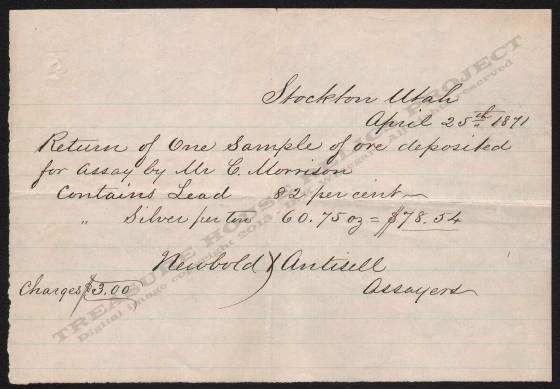 Stockton Utah
April 25th 1871
Return of One Sample of ore deposited
for assay by Mr C. Morrison
Contains Lead 82 per cent
" Silver per ton 60.75 oz = $78.54
Newbold & Antisell
Charges $3.00 Assayers
TREASURE HOUSE RELICS PROJECT